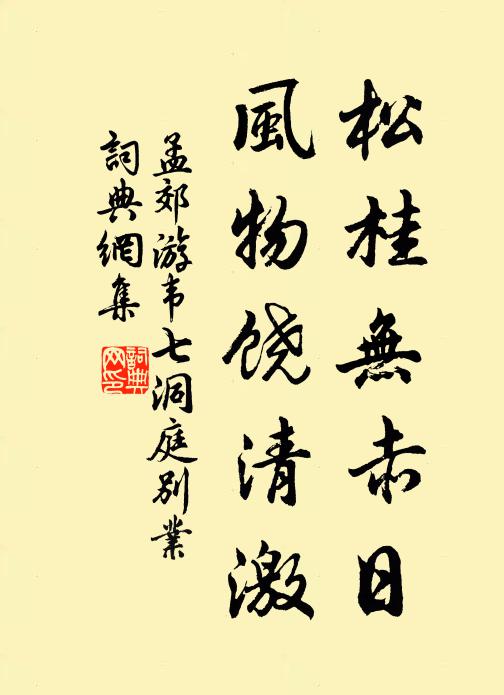 松桂無赤日
風物饶清激
孟郊游韦七洞庭别業
詞典網集
詞典
网印